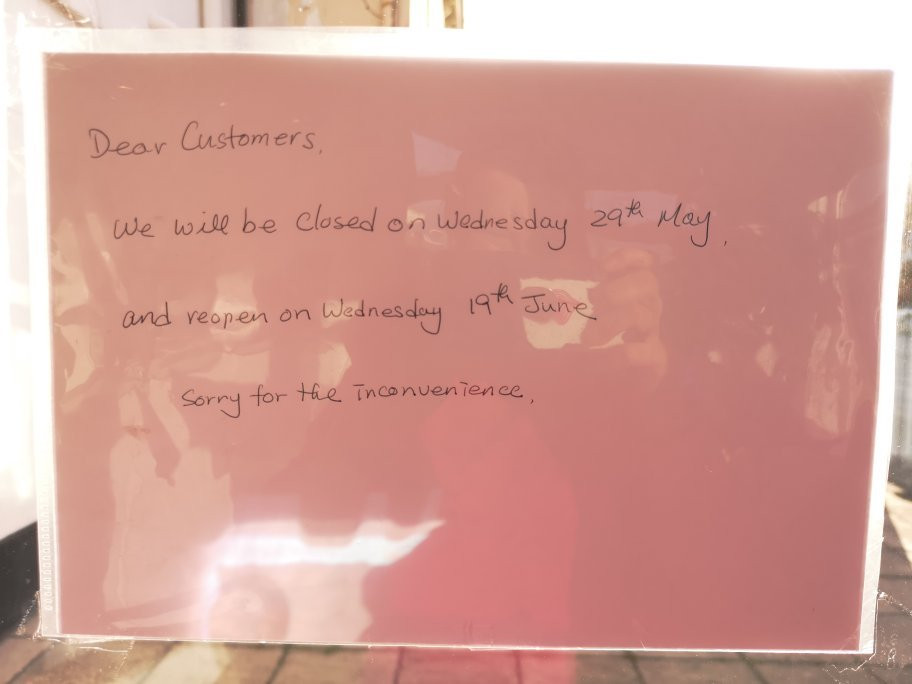 Dear Customers,
We will be closed on Wednesday 29th May,
and reopen on Wednesday 19th June
Sorry for the inconvenience,